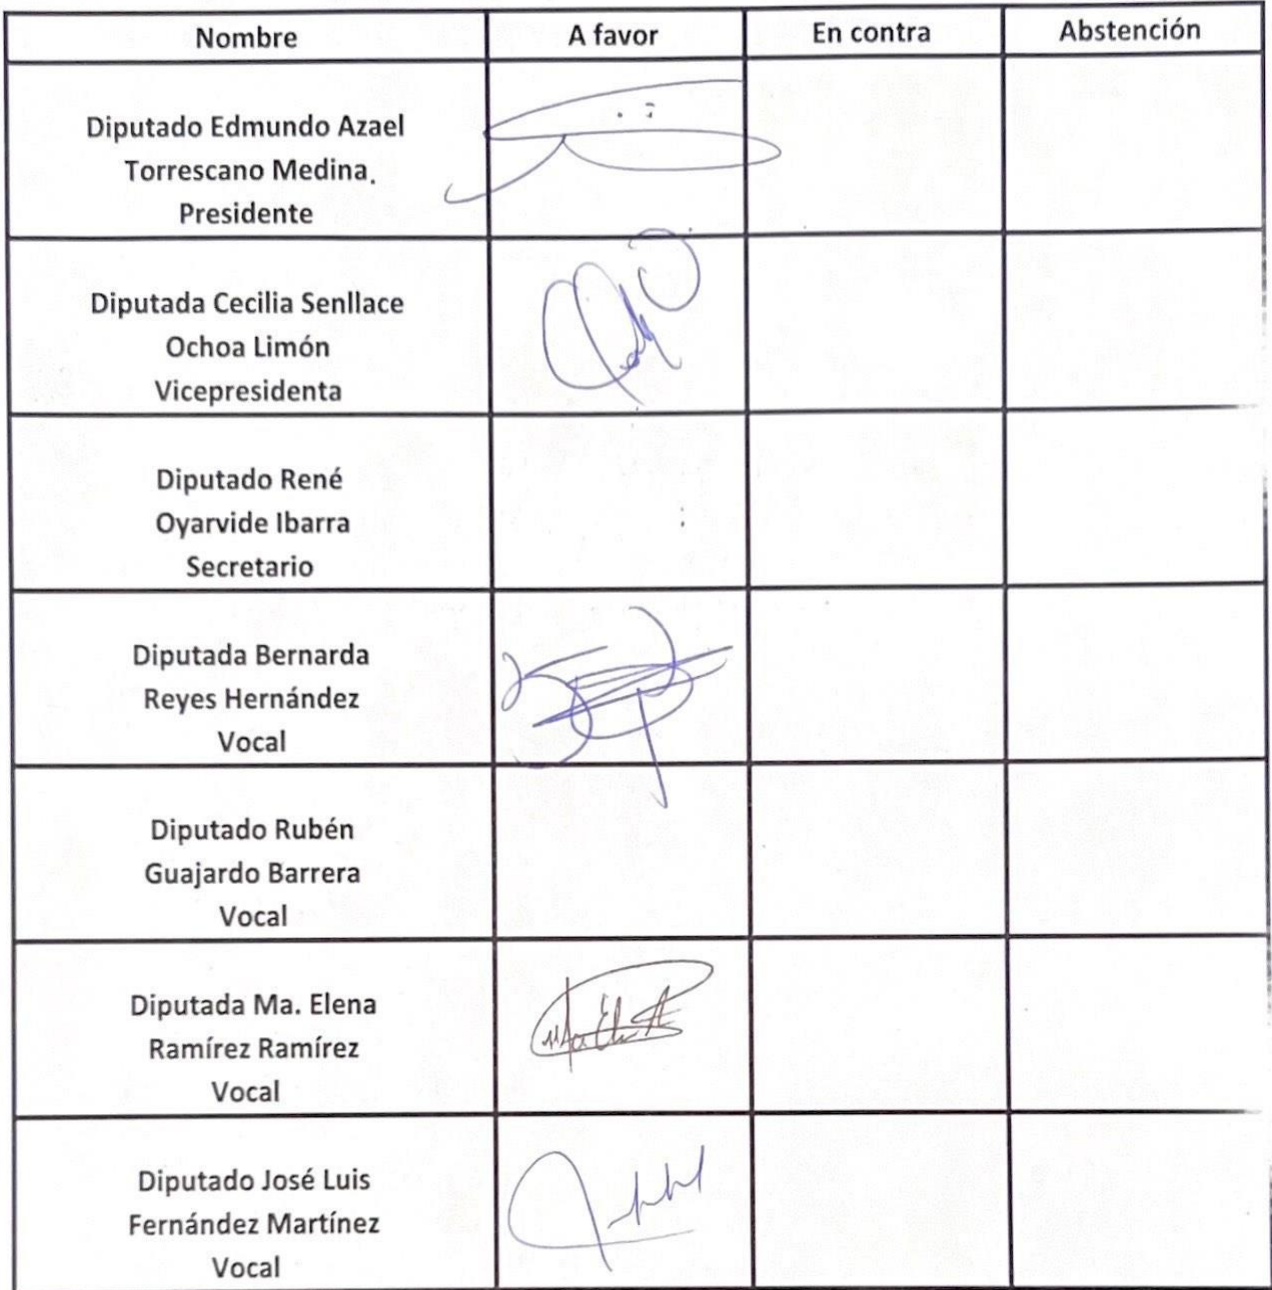 Nombre A favor En contra Abstención
Diputado Edmundo Azael
Torrescano Medina.
Presidente
Diputada Cecilia Senllace
Ochoa Limón
Vicepresidenta
Diputado René
Oyarvide Ibarra
Secretario
Diputada Bernarda
Reyes Hernández
Vocal
Diputado Rubén
Guajardo Barrera
Vocal
Diputada Ma. Elena
Ramírez Ramírez
Vocal
Diputado José Luis
Fernández Martínez
Vocal